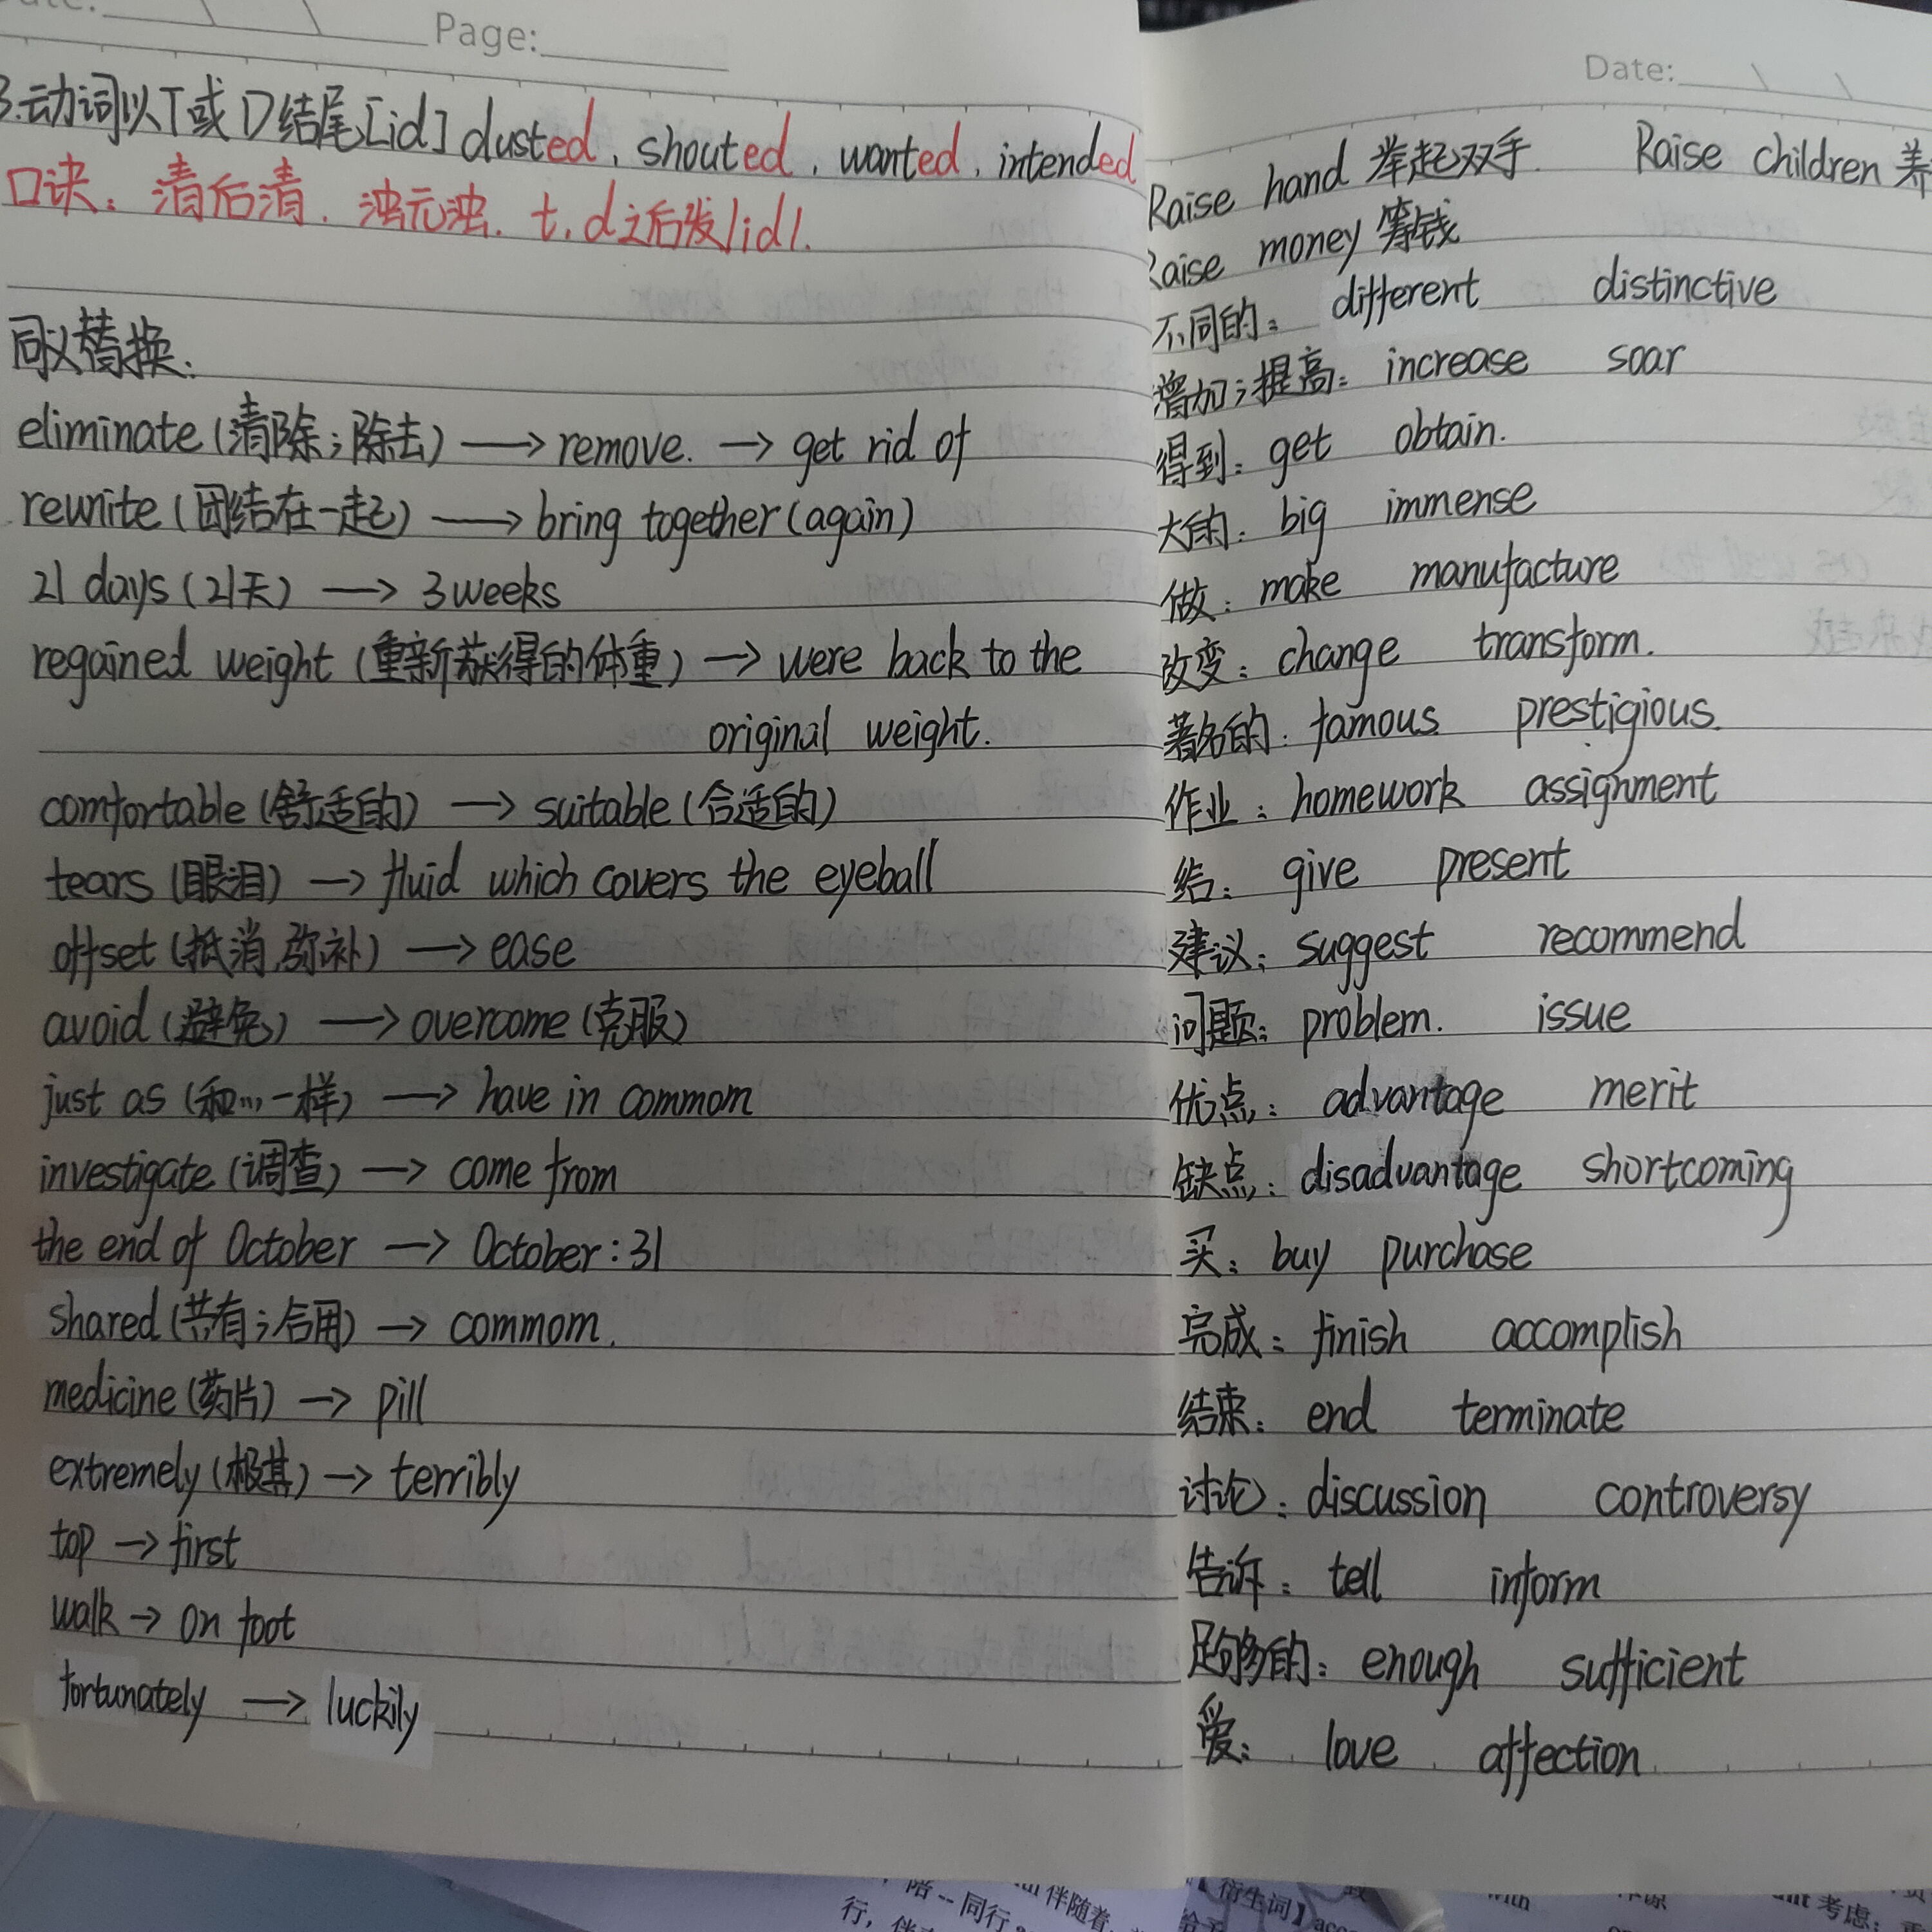 Page:
3.动词以T或D结尾[id] dusted, shouted, wanted, intended
口诀: 清后清, 浊元浊, t, d之后发/id/.
同义替换:
eliminate(清除;除去) → remove. → get rid of
reunite(团结在一起) → bring together(again)
21 days(21天) → 3 weeks
regained weight(重新获得的体重) → were back to the
original weight.
comfortable(舒适的) → suitable(合适的)
tears(眼泪) → fluid which covers the eyeball
offset(抵消,弥补) → ease
avoid(避免) → overcome(克服)
just as(和...一样) → have in commom
investigate(调查) → come from
the end of October → October:31
shared(共有;合用) → commom.
medicine(药片) → pill
extremely(极其) → terribly
top → first
walk → on foot
fortunately → luckily
Date:
Raise hand 举起双手. Raise children 养
Raise money 筹钱
不同的: different distinctive
增加;提高: increase soar
得到: get obtain.
大的: big immense
做: make manufacture
改变: change transform.
著名的: famous prestigious.
作业: homework assignment
给: give present
建议: suggest recommend
问题: problem. issue
优点: advantage merit
缺点: disadvantage shortcoming
买: buy purchase
完成: finish accomplish
结束: end terminate
讨论: discussion controversy
告诉: tell inform
足够的: enough sufficient
爱: love affection
陪--同行
伴随着
行,
【衍生词】
考虑;